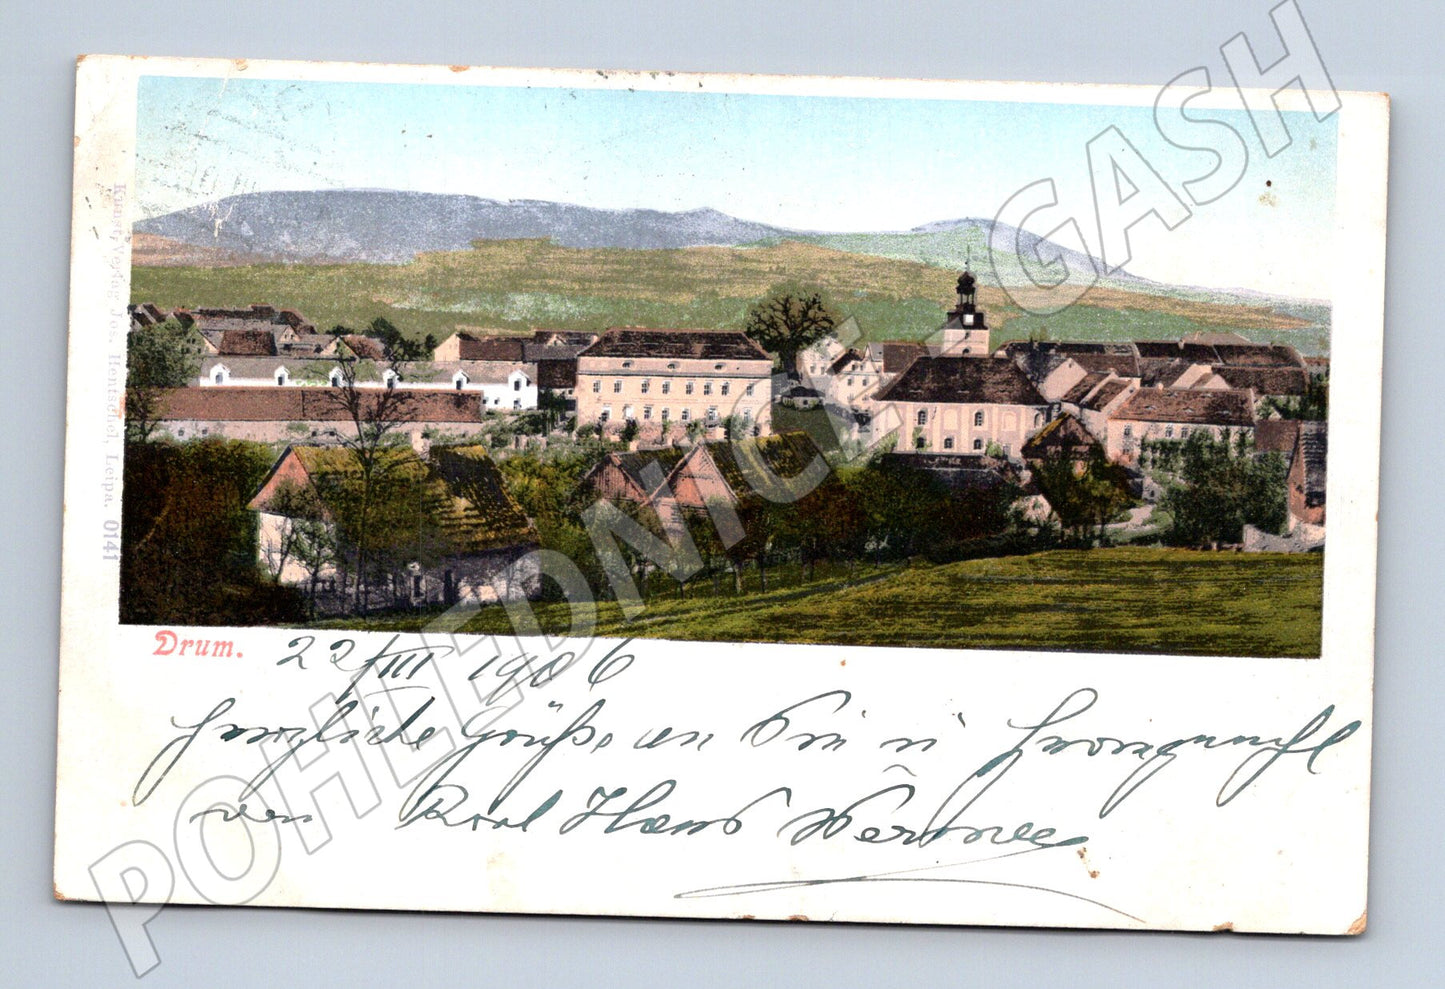 Kunst-Verlag Jos. Hentschel, Leipa. 0141
Drum. 22/III 1906
Herzliche Grüße an Sie u
von Karl Hans
POHLEDNICE-GASH